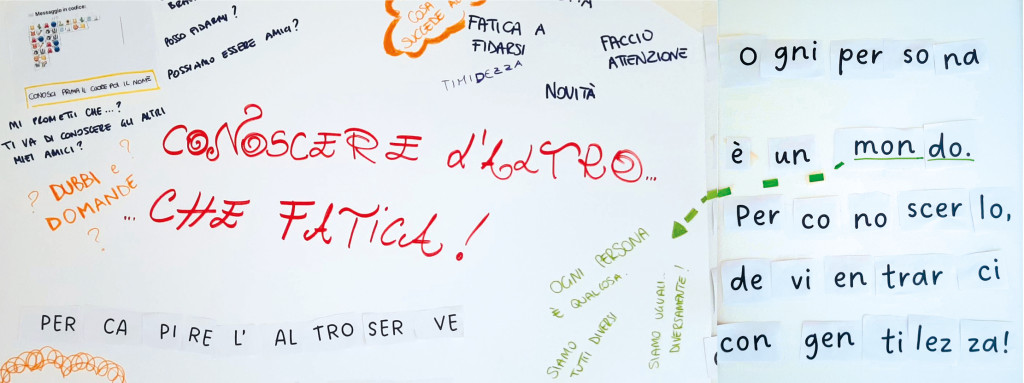 Messaggio in codice:
CONOSCI PRIMA IL CUORE POI IL NOME
POSSO FIDARMI?
POSSIAMO ESSERE AMICI?
MI PROMETTI CHE...?
TI VA DI CONOSCERE GLI ALTRI
MIEI AMICI?
? DUBBI e ?
DOMANDE
?
COSA
SUCCEDE
FATICA A
FIDARSI
TIMIDEZZA
NOVITÀ
FACCIO
ATTENZIONE
CONOSCERE L'ALTRO...
... CHE FATICA!
PER CA PI RE L' AL TRO SER VE
OGNI PERSONA
È QUALCOSA.
SIAMO
TUTTI DIVERSI
SIAMO UGUALI..
DIVERSAMENTE!
O gni per so na
è un mon do.
Per co no scer lo,
de vi en trar ci
con gen ti lez za!